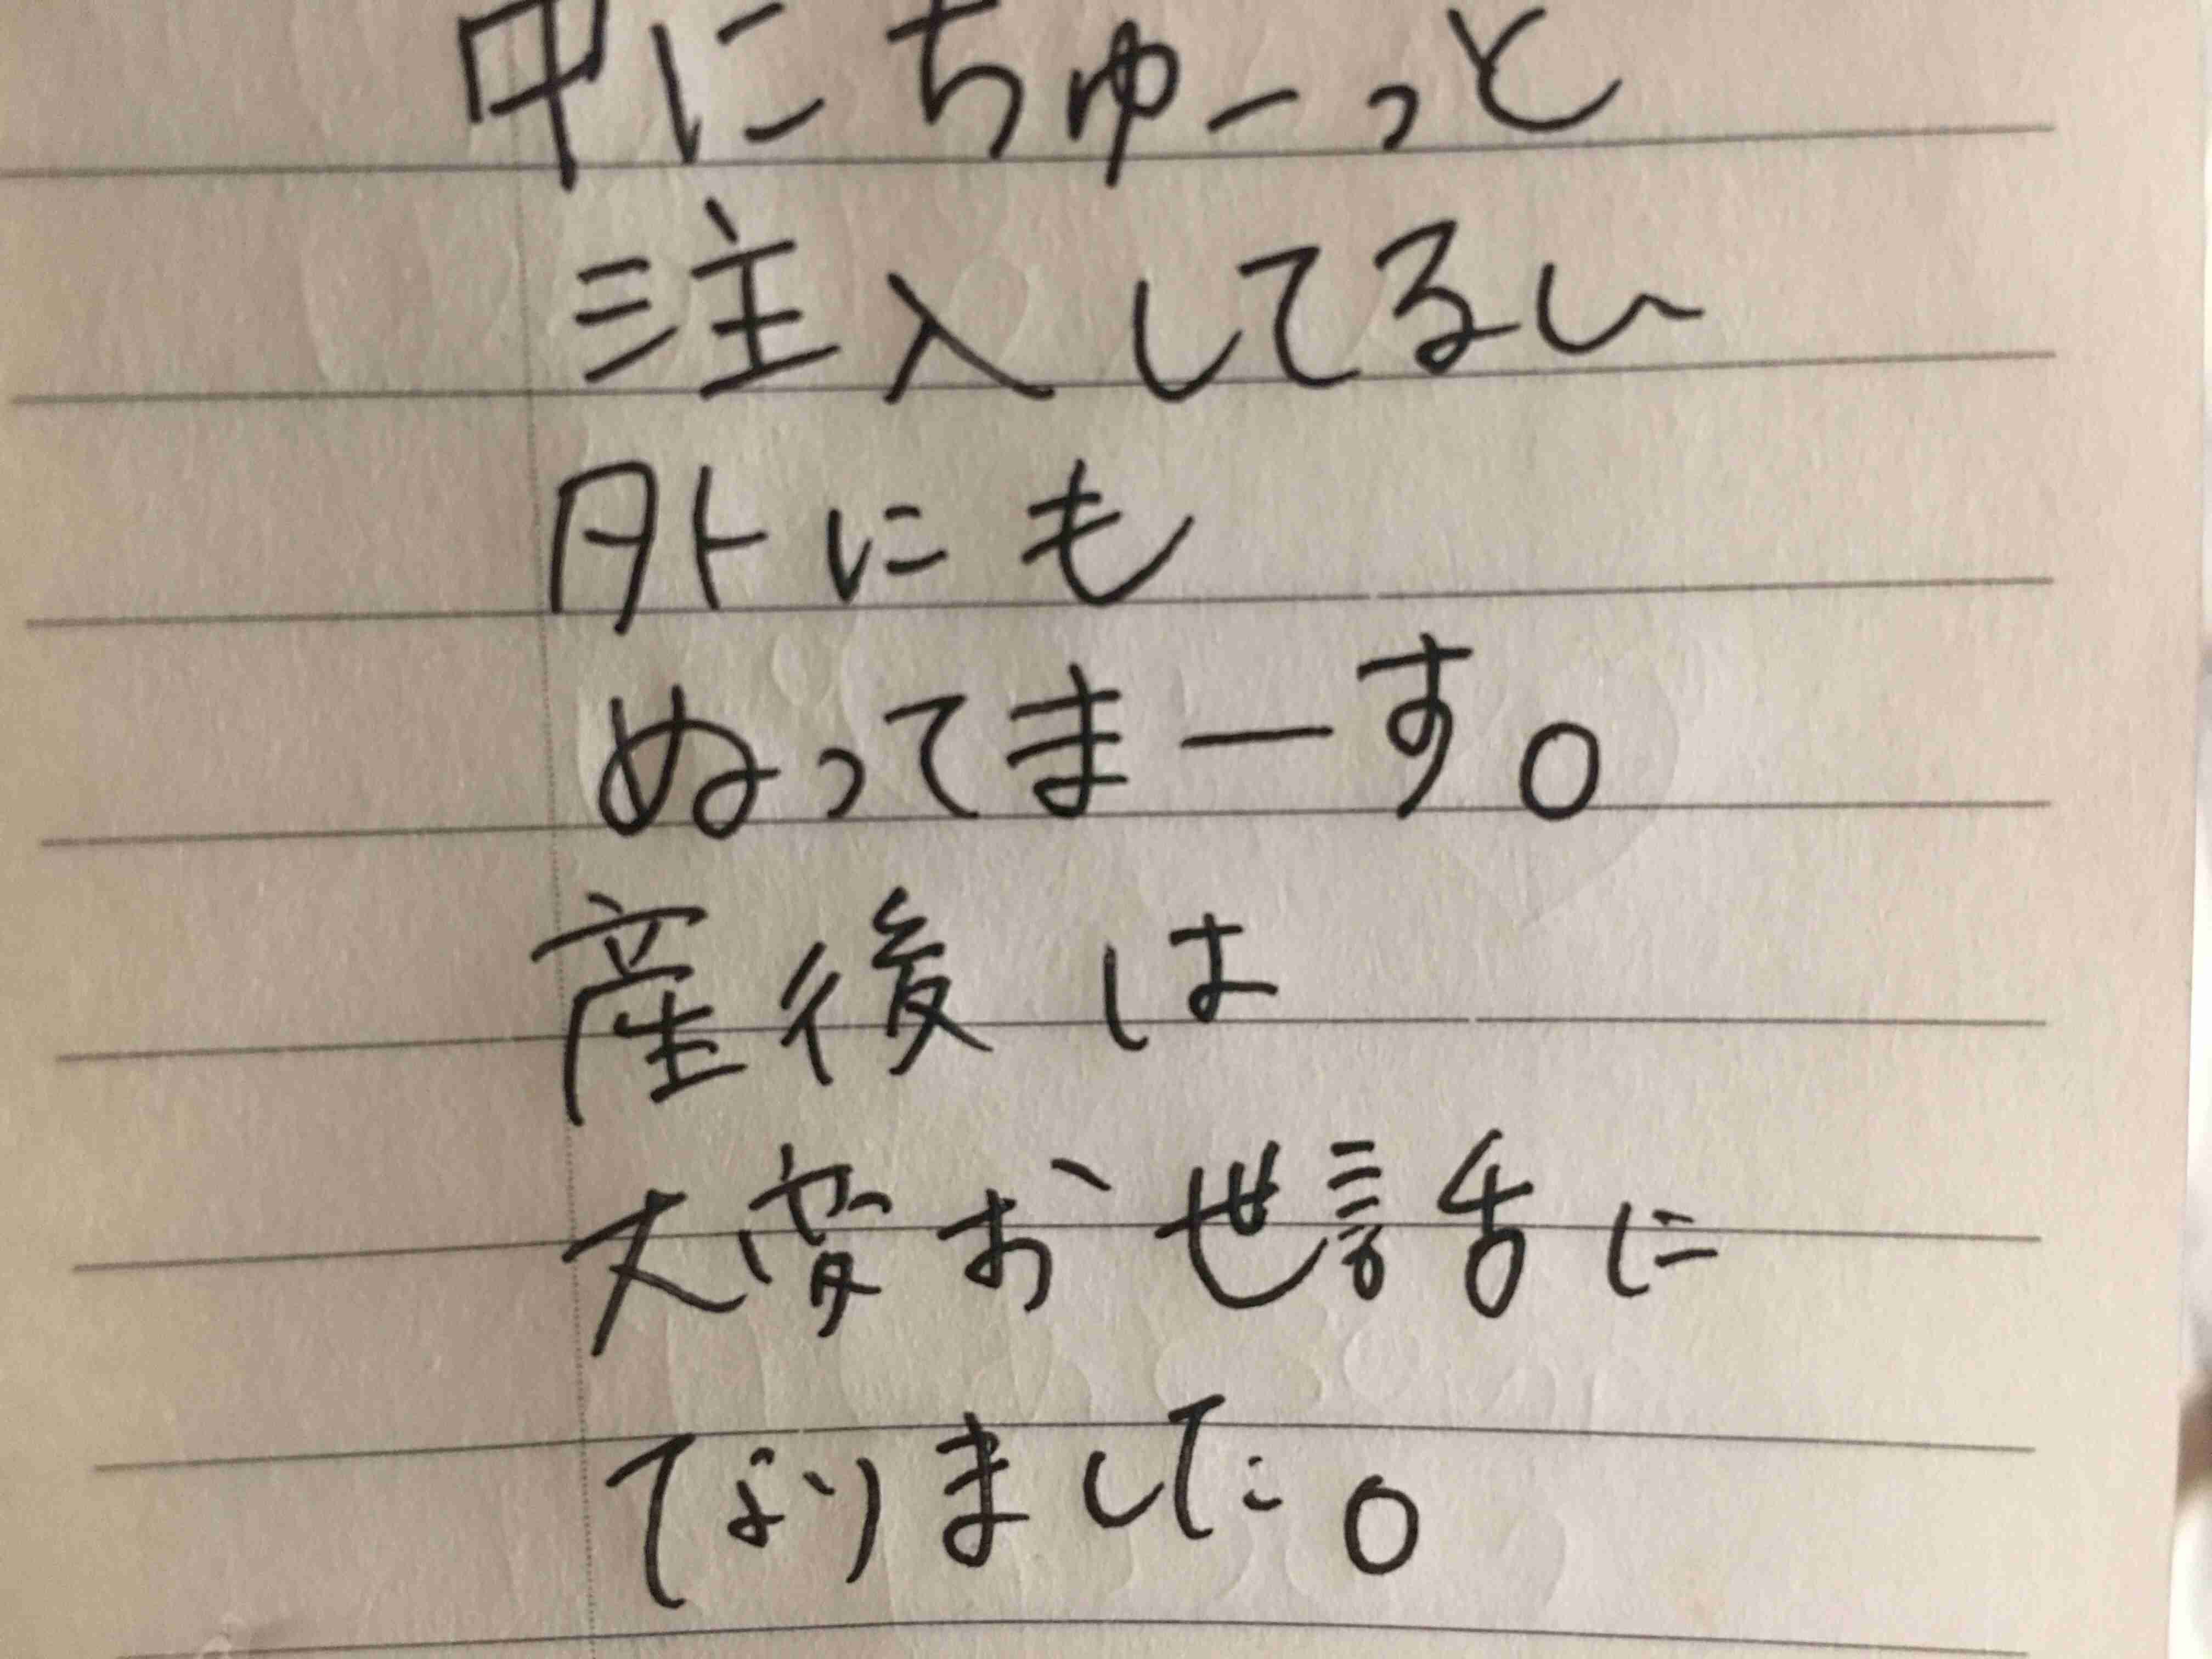 中にちゅーっと
注入してるし
外にも
ぬってまーす。
産後は
大変お世話に
なりました。